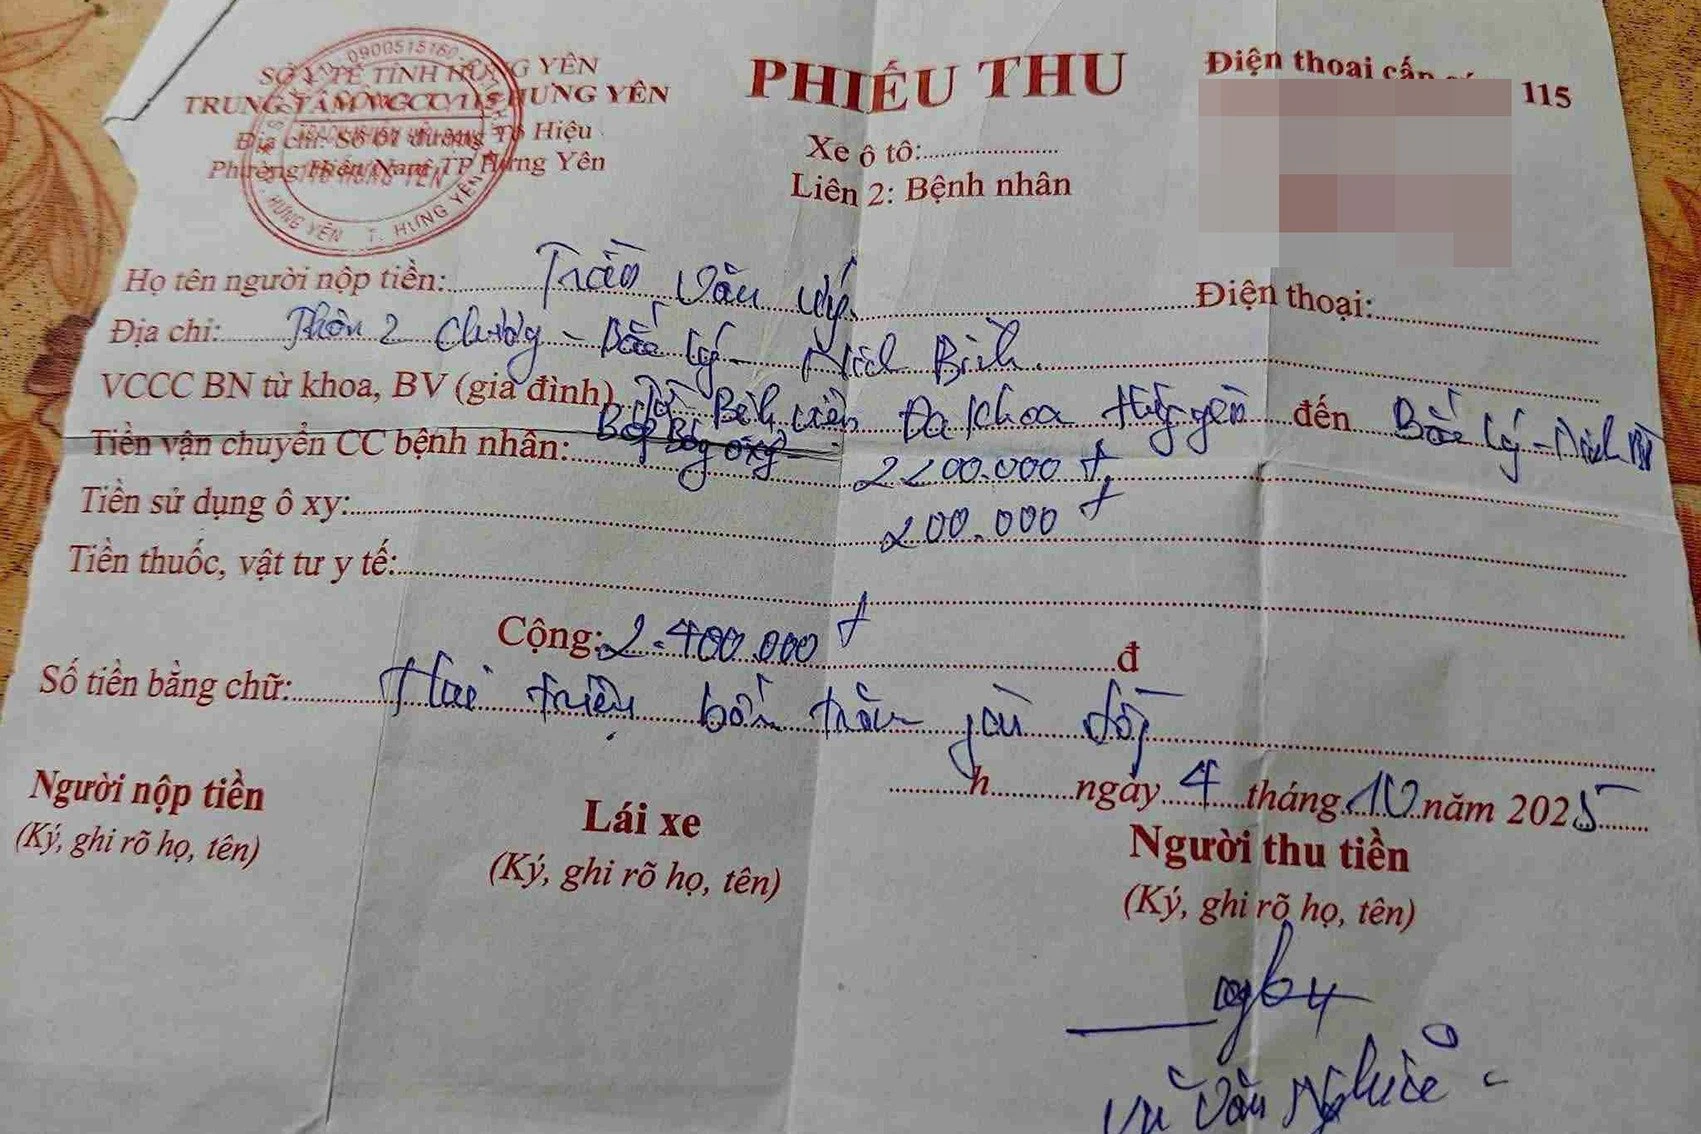 SỞ Y TẾ TỈNH HƯNG YÊN
TRUNG TÂM VCCC 115 HƯNG YÊN
Địa chỉ: Số 01 đường Tô Hiệu
Phường Hiến Nam TP Hưng Yên
0900515160
HƯNG YÊN T. HƯNG YÊN
PHIẾU THU
Xe ô tô:
Liên 2: Bệnh nhân
Điện thoại cấp 115
Họ tên người nộp tiền: Trần Văn Điện thoại:
Địa chỉ: Thôn 2 - Bắc Lý - Ninh Bình.
VCCC BN từ khoa, BV (gia đình) Từ Bệnh viện Đa khoa Hưng yên đến Bắc Lý - Ninh
Tiền vận chuyển CC bệnh nhân: Bóp Bóng oxy 2200.000 đ
Tiền sử dụng ô xy: 200.000 đ
Tiền thuốc, vật tư y tế:
Cộng: 2.400.000 đ đ
Số tiền bằng chữ: Hai triệu bốn trăm ngàn đồng
h ngày 4 tháng 10 năm 2025
Người nộp tiền
(Ký, ghi rõ họ, tên)
Lái xe
(Ký, ghi rõ họ, tên)
Người thu tiền
(Ký, ghi rõ họ, tên)
Vũ Văn